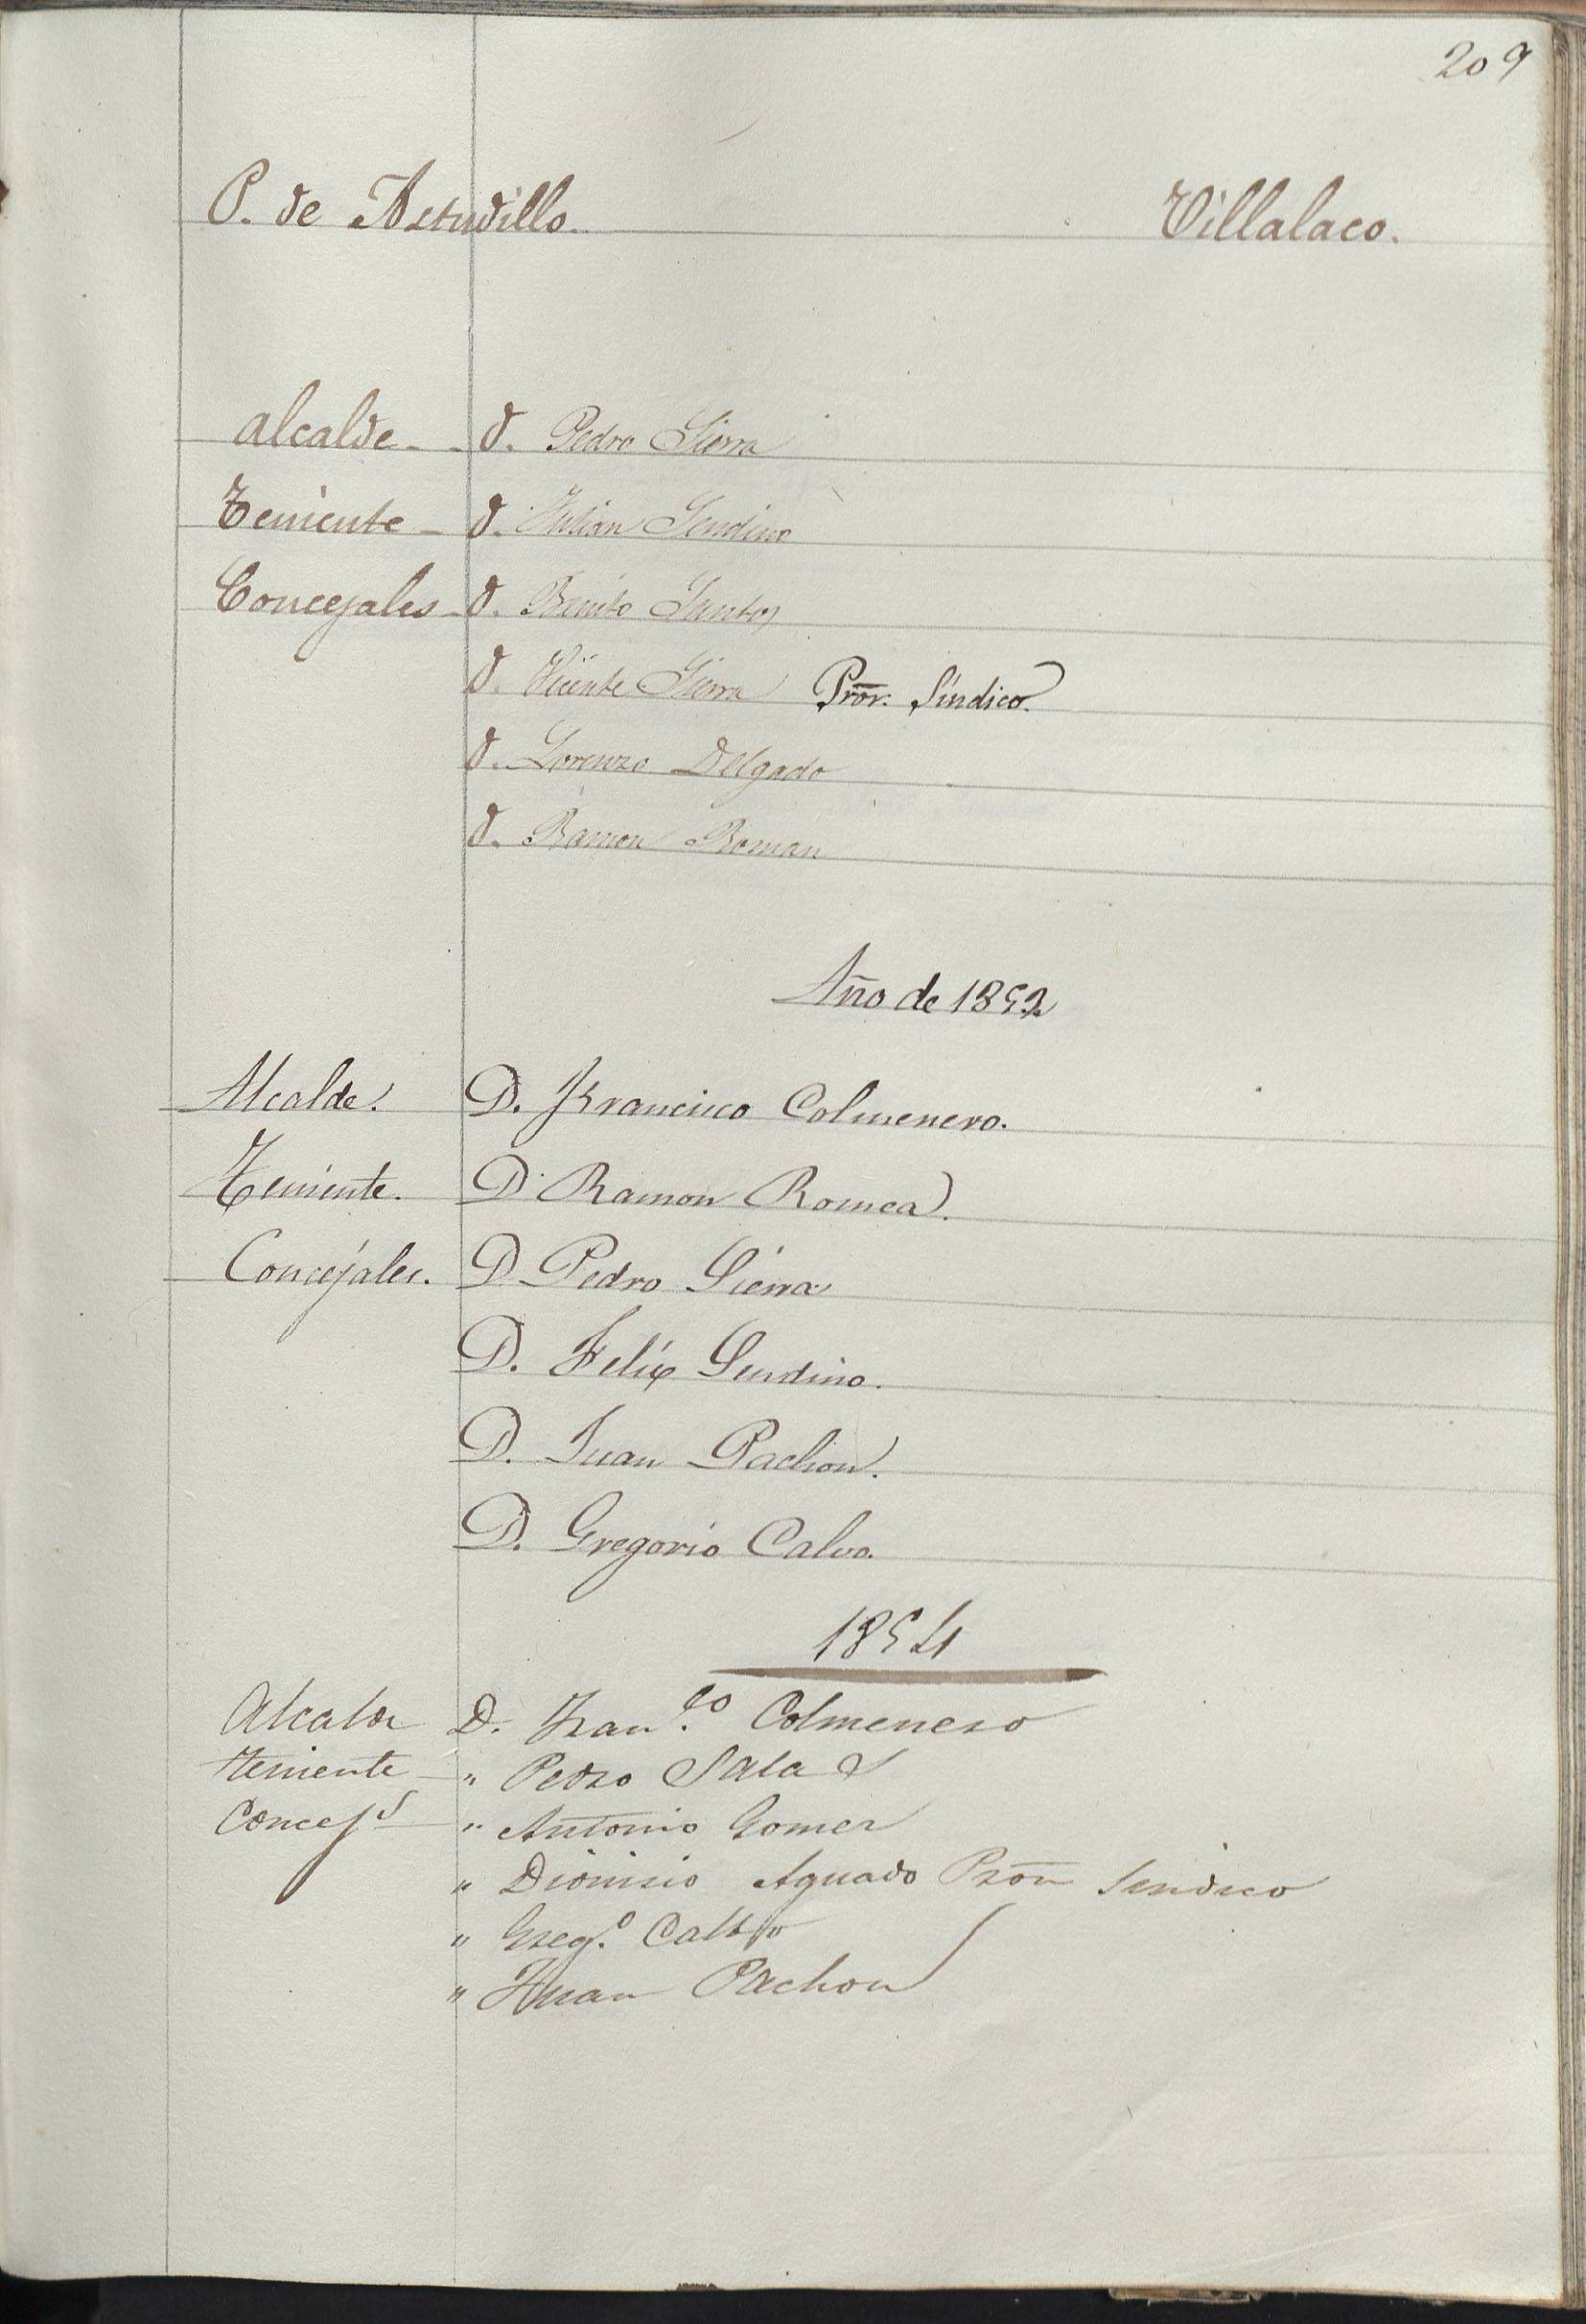 209
P. de Astudillo. Villalaco.
Alcalde - D. Pedro Sierra
Teniente - D. Julian Sendino
Concejales - D. Benito Santos
D. Vicente Sierra Pror. Síndico.
D. Lorenzo Delgado
D. Ramon Roman
Año de 1852
Alcalde. D. Francisco Colmenero.
Teniente. D. Ramon Romea.
Concejales. D. Pedro Sierra
D. Felix Sendino.
D. Juan Pachon.
D. Gregorio Calvo.
1854
Alcalde D. Fran.co Colmenero
teniente " Pedro Sala
Concejs " Antonio Gomez
" Dionisio Aguado Prōn Sindico
" Greg.o Calbo
" Juan Pachon